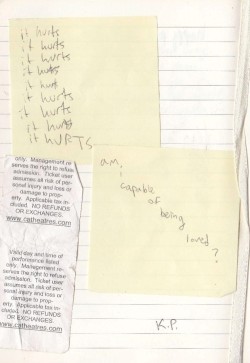 it hurts
it hurts
it hurts
it hurts
it hurts
it hurts
it hurts
it hurts
it hURTS
am
i
capable
of
being
loved
?
K.P.
only. Management re-
serves the right to refuse
admission. Ticket user
assumes all risk of per-
sonal injury and loss or
damage to prop-
erty. Applicable tax in-
cluded. NO REFUNDS
OR EXCHANGES.
www.cptheatres.com
Valid day and time of
performance listed
only. Management re-
serves the right to refuse
admission. Ticket user
assumes all risk of per-
sonal injury and loss or
damage to prop-
erty. Applicable tax in-
cluded. NO REFUNDS
OR EXCHANGES.